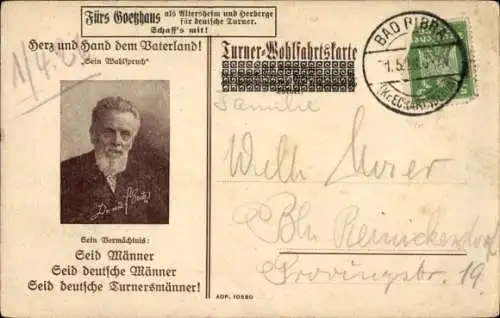 Fürs Goetzhaus als Altersheim und Herberge
für deutsche Turner.
Schaff's mit!
Herz und Hand dem Vaterland!
"Sein Wahlspruch"
Turner-Wohlfahrtskarte
BAD BIBRA
1.5.
(KR. ECKARTSB
1/4.2
Familie
Willy
Bln Reinickendorf
Provinzstr. 19
Sein Vermächtnis:
Seid Männer
Seid deutsche Männer
Seid deutsche Turnersmänner!
ADP. 10680